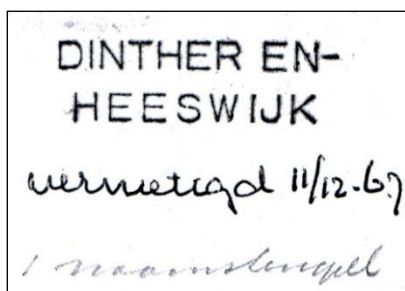 DINTHER EN-
HEESWIJK
vernietigd 11/12-67
1 naamstempel